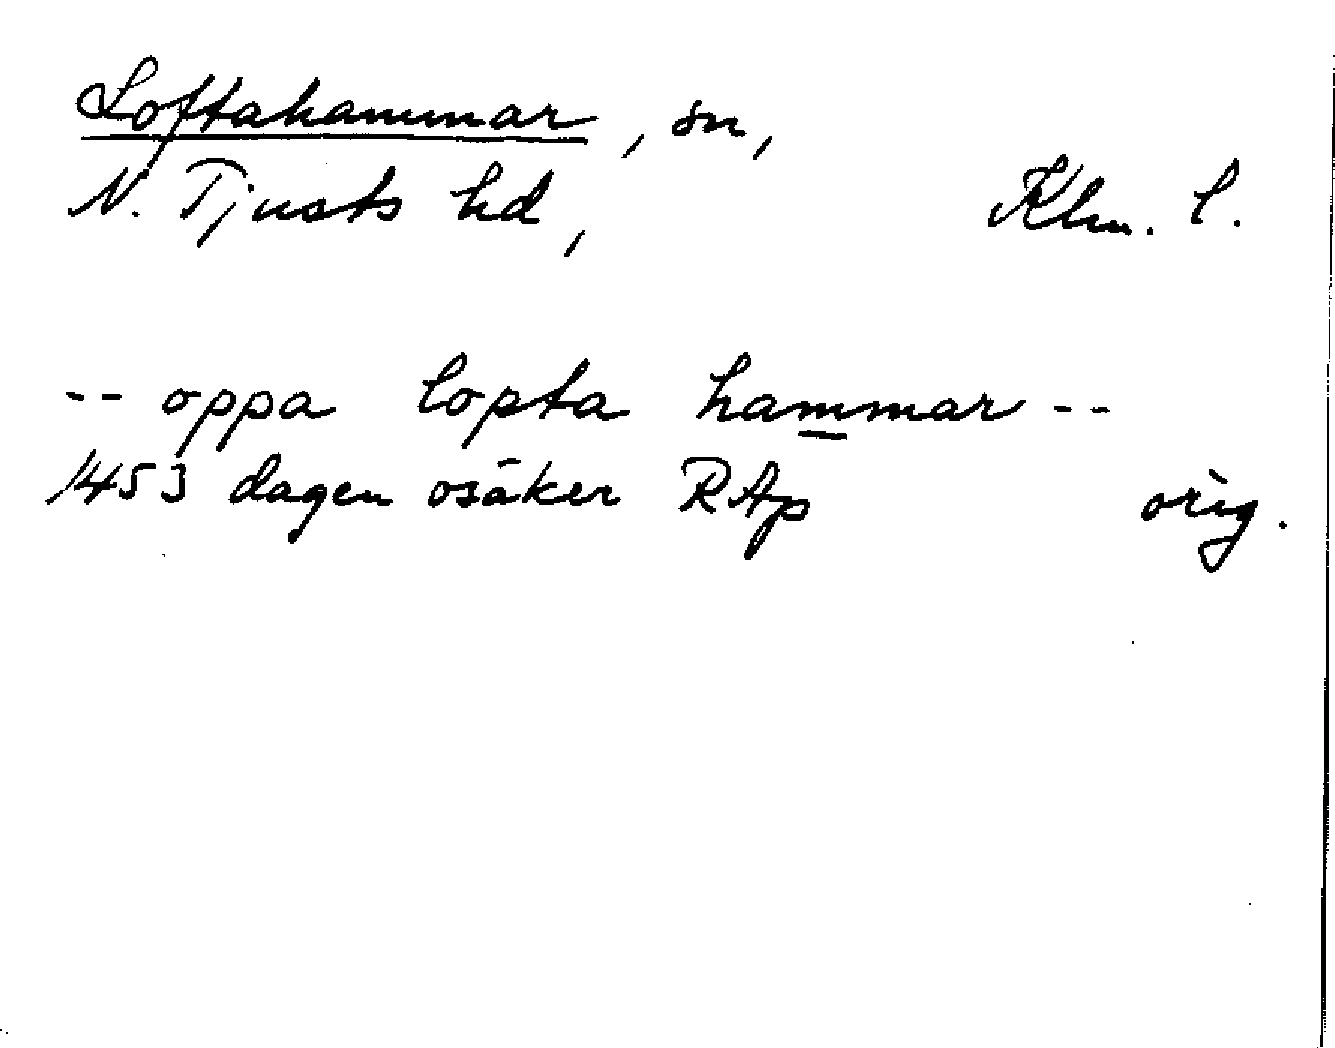 Loftahammar, sn,
N. Tjusts hd, Klm. l.
-- oppa lopta hammar --
1453 dagen osäker RAp orig.